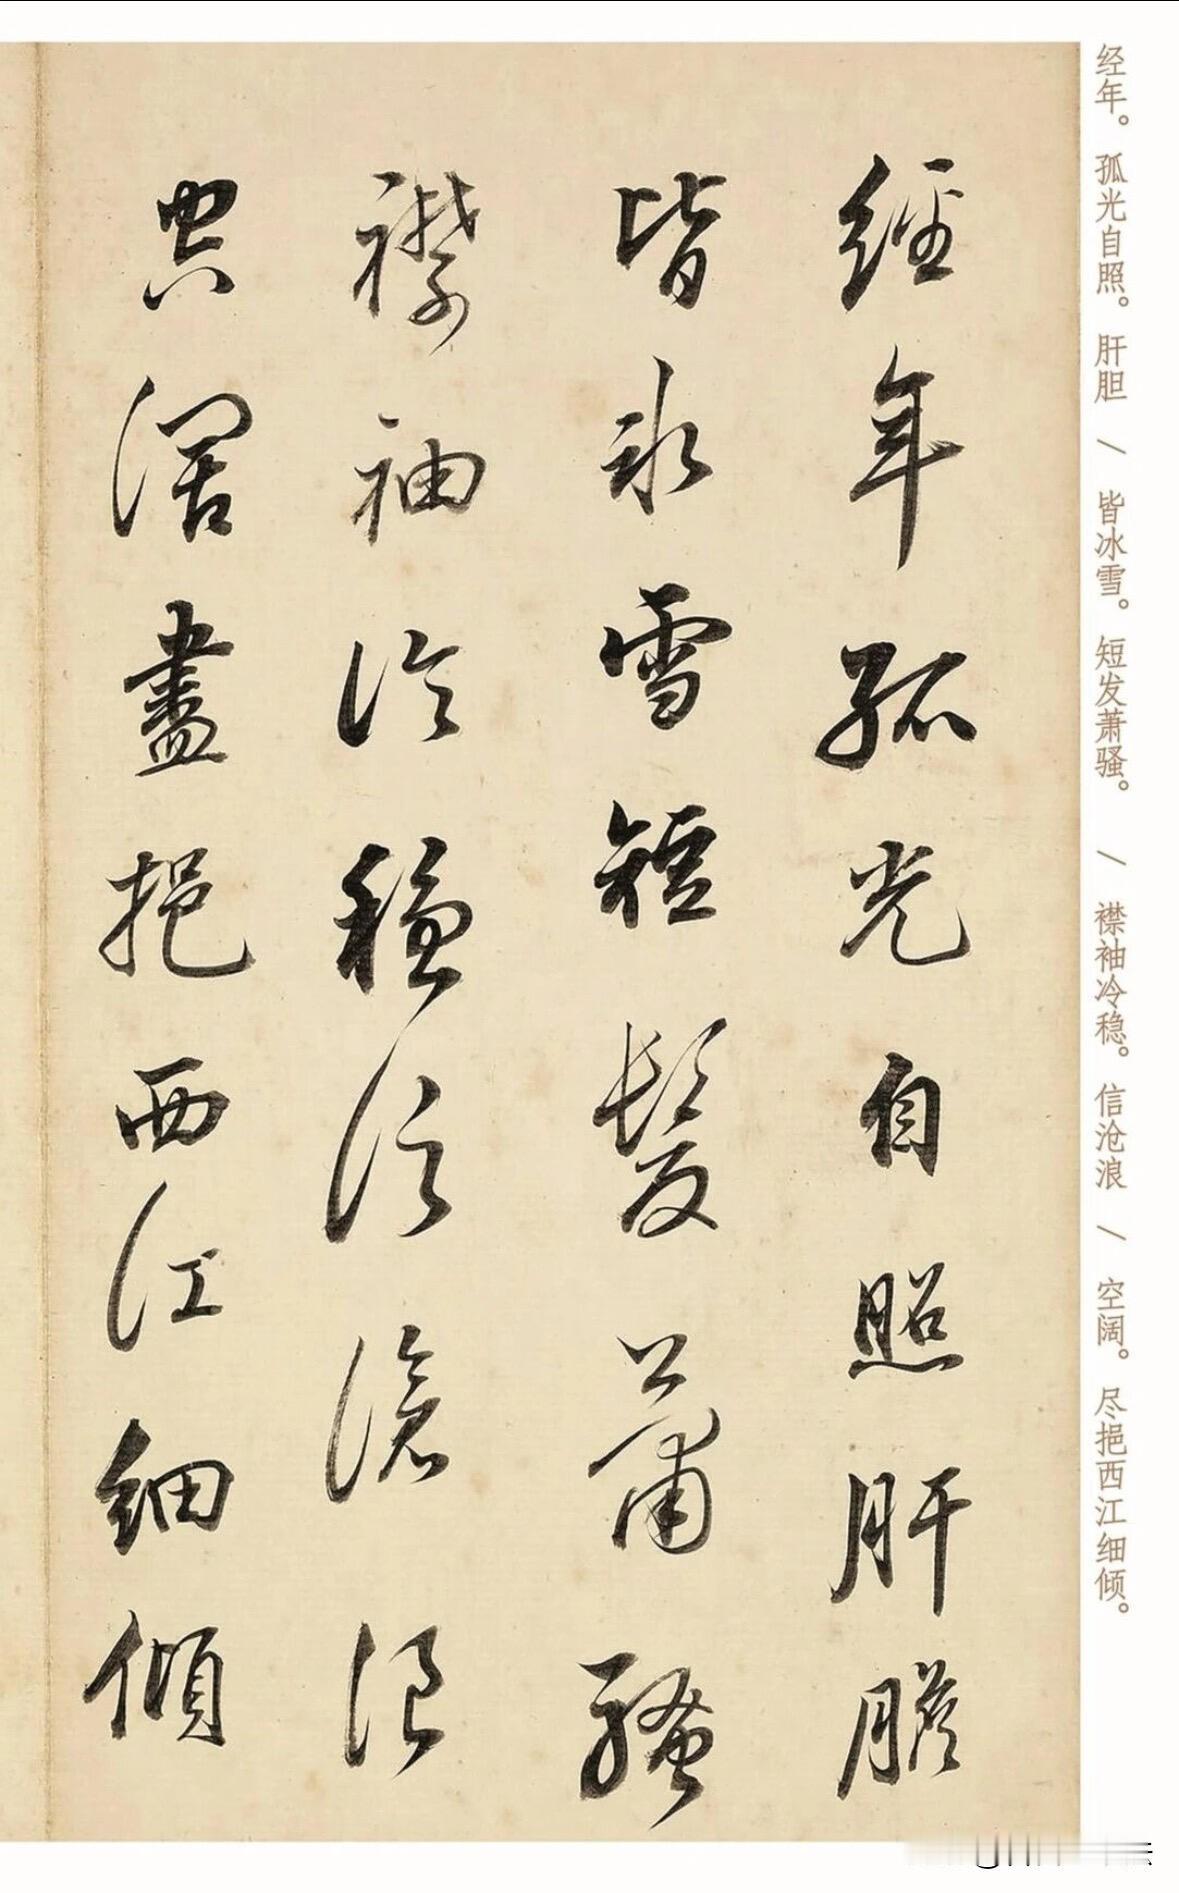 经年。孤光自照。肝胆/皆冰雪。短发萧骚。/襟袖冷稳。信沧浪/空阔。尽挹西江细倾。
經年孤光自照肝膽
皆冰雪短髮蕭騷
襟袖冷穩信滄浪
空闊盡挹西江細傾